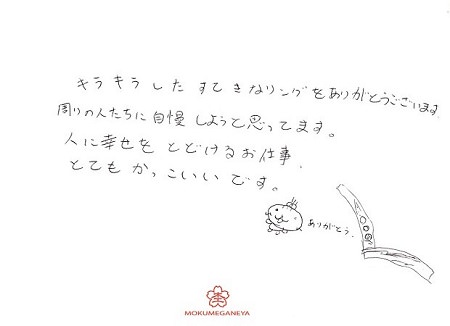 キラキラした すてきなリングをありがとうございます.
周りの人たちに自慢しようと思ってます。
人に幸せを とどけるお仕事.
とても かっこいい です。
ありがとう.
MOKUMEGANEYA